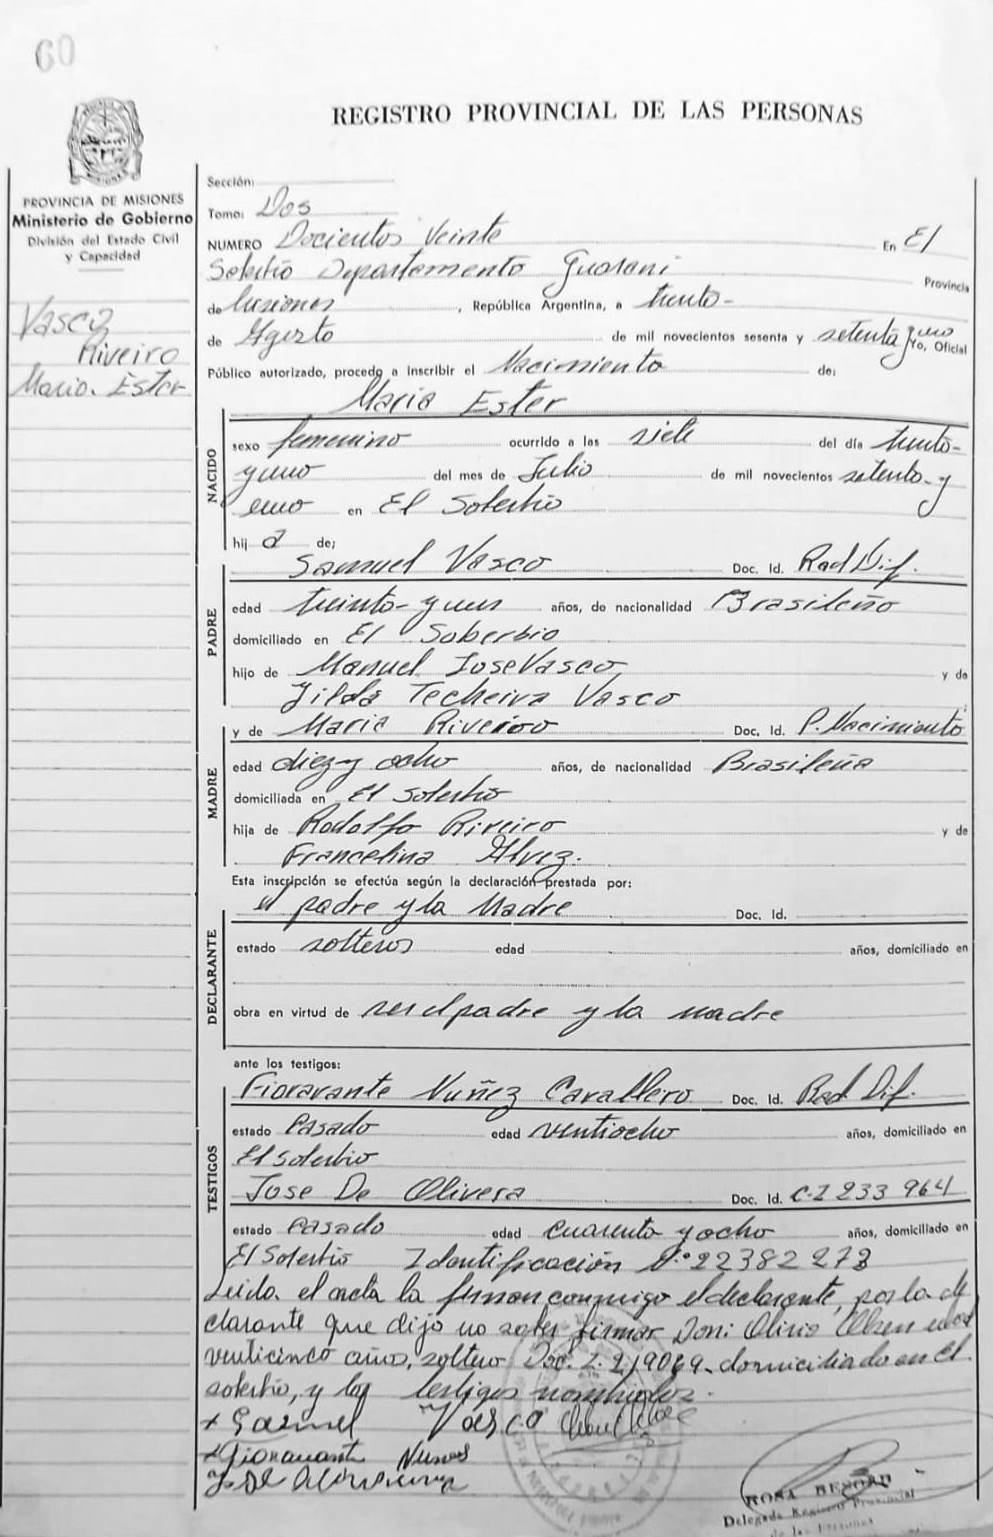 60
REGISTRO PROVINCIAL DE LAS PERSONAS
PROVINCIA DE MISIONES
Ministerio de Gobierno
División del Estado Civil
y Capacidad
Vasco
Riveiro
Maria. Ester
Sección:
Tomo: Dos
NUMERO Docientos Veinte En El
Soberbio Departamento Guarani Provincia
de Misiones, República Argentina, a treinta-
de Agosto de mil novecientos sesenta y setenta y uno Yo, Oficial
Público autorizado, procedo a inscribir el Nacimiento de:
Maria Ester
NACIDO
sexo femenino ocurrido a las siete del día treinta-
y uno del mes de Julio de mil novecientos setenta y
uno en El Soberbio
hij a de:
Samuel Vasco Doc. Id. Rad Dif.
PADRE
edad treinta y un años, de nacionalidad Brasileño
domiciliado en El Soberbio
hijo de Manuel Jose Vasco y de
Jilda Techeira Vasco
y de Maria Riveiro Doc. Id. P. Nacimiento
MADRE
edad diez y ocho años, de nacionalidad Brasileña
domiciliada en El Soberbio
hija de Rodolfo Riveiro y de
Francelina Alvez.
Esta inscripción se efectúa según la declaración prestada por:
el padre y la Madre Doc. Id.
DECLARANTE
estado solteros edad años, domiciliado en
obra en virtud de ser el padre y la madre
ante los testigos:
Fioravante Nuñez Cavallero Doc. Id. Rad Dif.
TESTIGOS
estado Casado edad ventiocho años, domiciliado en
El Soberbio
Jose De Olivera Doc. Id. C.I 233 964
estado Casado edad cuarenta y ocho años, domiciliado en
El Soberbio Identificación N° 22382 273
Leida el acta la firman conmigo el declarante, por la de
clarante que dijo no saber firmar Doni Olirio
venticinco años, soltero Doc. domiciliado en el
soberbio, y los testigos nombrados.
x Samuel Vasco
x Gioravanti Nunes
ROSA BENORD
Delegada Registro Provincial
de las Personas